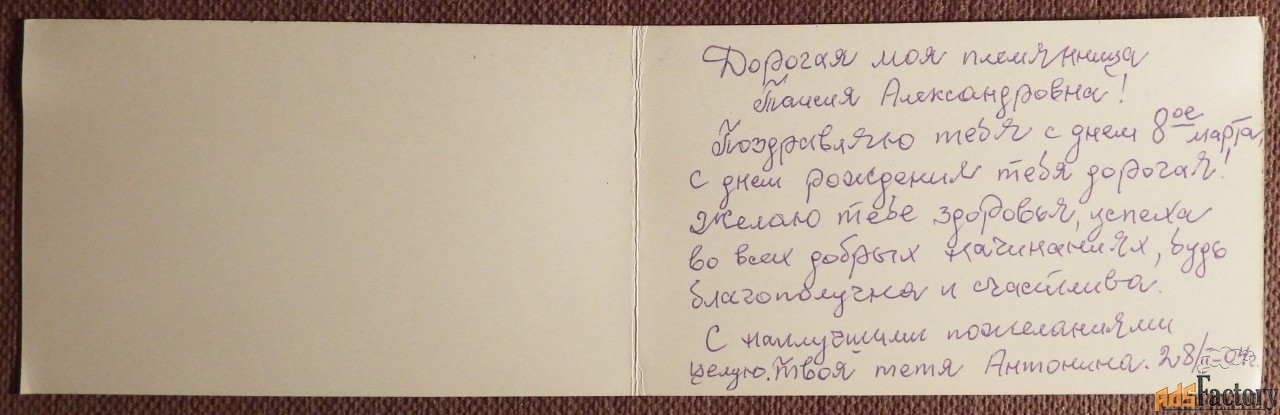 Дорогая моя племянница
Таисия Александровна!
Поздравляю тебя с днем 8ое марта,
с днем рождения тебя дорогая!
Желаю тебе здоровья, успеха
во всех добрых начинаниях, будь
благополучна и счастлива.
С наилучшими пожеланиями
целую. Твоя тетя Антонина. 28/II-04г.
AdsFactory